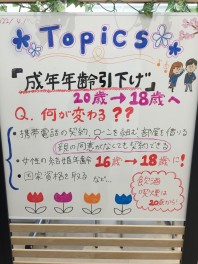 Topics
「成年年齢引下げ」
20歳→18歳へ
Q. 何が変わる??
・携帯電話の契約、ローンを組む、部屋を借りる
親の同意がなくても契約できる
・女性の結婚年齢 16歳→18歳に!
・国家資格を取る など…
飲酒
喫煙は
20歳から!